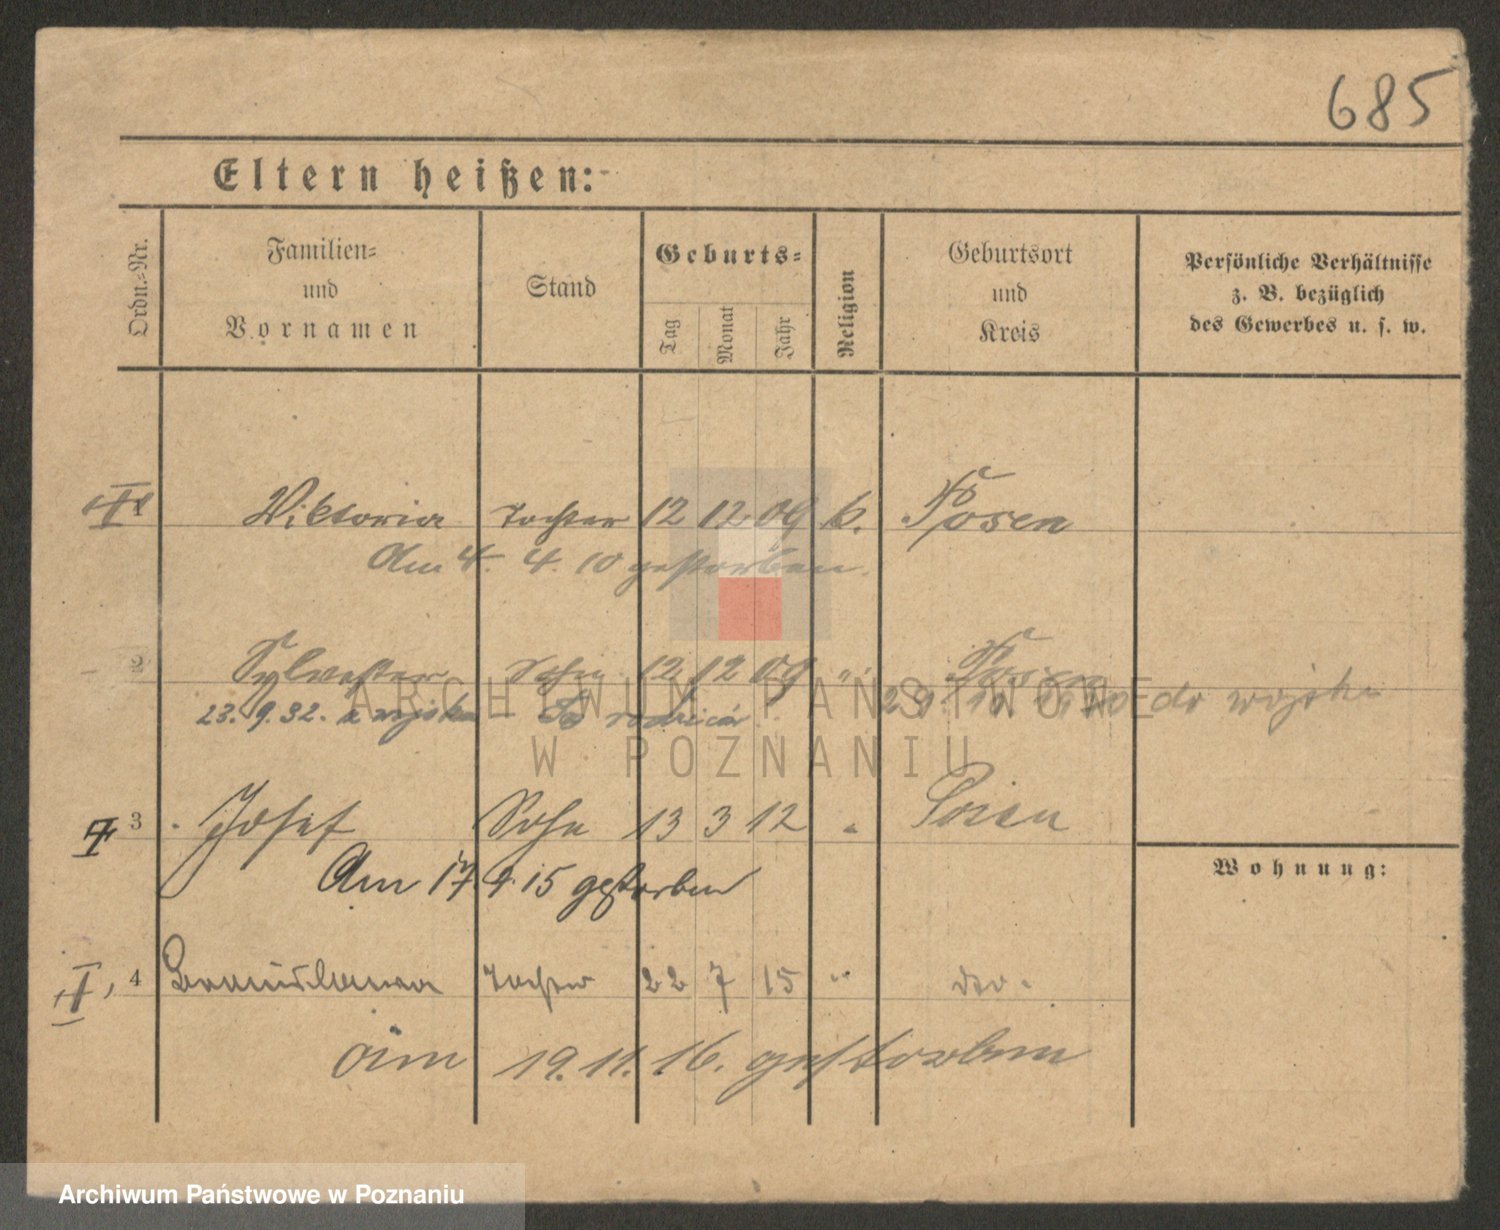 685
Eltern heißen:
Ordn.-Nr.
Familien- und Vornamen
Stand
Geburts-
Tag
Monat
Jahr
Religion
Geburtsort und Kreis
Persönliche Verhältnisse z. B. bezüglich des Gewerbes u. s. w.
Viktoria Tochter 12 12 09 k. Posen
Am 4. 4. 10 gestorben.
2 Sylvester Sohn 12 12 09 " Posen
23. 9. 32. z wojska do wojska
3 Josef Sohn 13 3 12 " Posen
Am 17 4 15 gestorben
Wohnung:
4 Tochter 22 7 15 " dto.
am 19. 11. 16. gestorben
ARCHIWUM PAŃSTWOWE
W POZNANIU
Archiwum Państwowe w Poznaniu